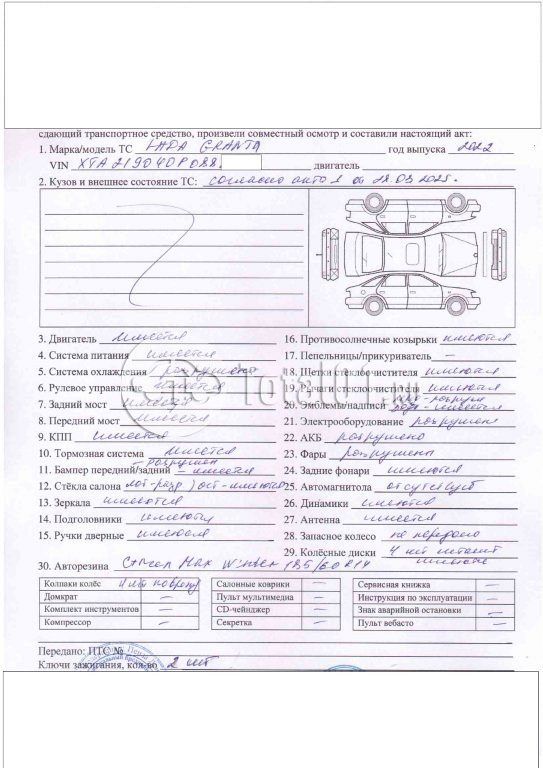 сдающий транспортное средство, произвели совместный осмотр и составили настоящий акт:
1. Марка/модель ТС LADA GRANTA год выпуска 2022
VIN XTA219040P088 двигатель
2. Кузов и внешнее состояние ТС: согласно акта 1 от 28.03 2025.
3. Двигатель имеется
4. Система питания имеется
5. Система охлаждения разрушена
6. Рулевое управление имеется
7. Задний мост имеется
8. Передний мост имеется
9. КПП имеется
10. Тормозная система имеется
11. Бампер передний/задний - разрушен - имеется
12. Стёкла салона лоб-разр) ост-имеются
13. Зеркала имеются
14. Подголовники имеются
15. Ручки дверные имеются
16. Противосолнечные козырьки имеются
17. Пепельницы/прикуриватель —
18. Щетки стеклоочистителя имеются
19. Рычаги стеклоочистителя имеются
20. Эмблемы/надписи
21. Электрооборудование разрушено
22. АКБ разрушено
23. Фары разрушены
24. Задние фонари имеются
25. Автомагнитола отсутствует
26. Динамики имеются
27. Антенна имеется
28. Запасное колесо не передано
29. Колёсные диски 4 шт
30. Авторезина Winter 185/60 R14
Колпаки колёс 4 шт
Домкрат —
Комплект инструментов —
Компрессор —
Салонные коврики —
Пульт мультимедиа —
CD-чейнджер —
Секретка —
Сервисная книжка —
Инструкция по эксплуатации —
Знак аварийной остановки —
Пульт вебасто —
Передано: ПТС №
Ключи зажигания, кол-во 2 шт
Total01.ru